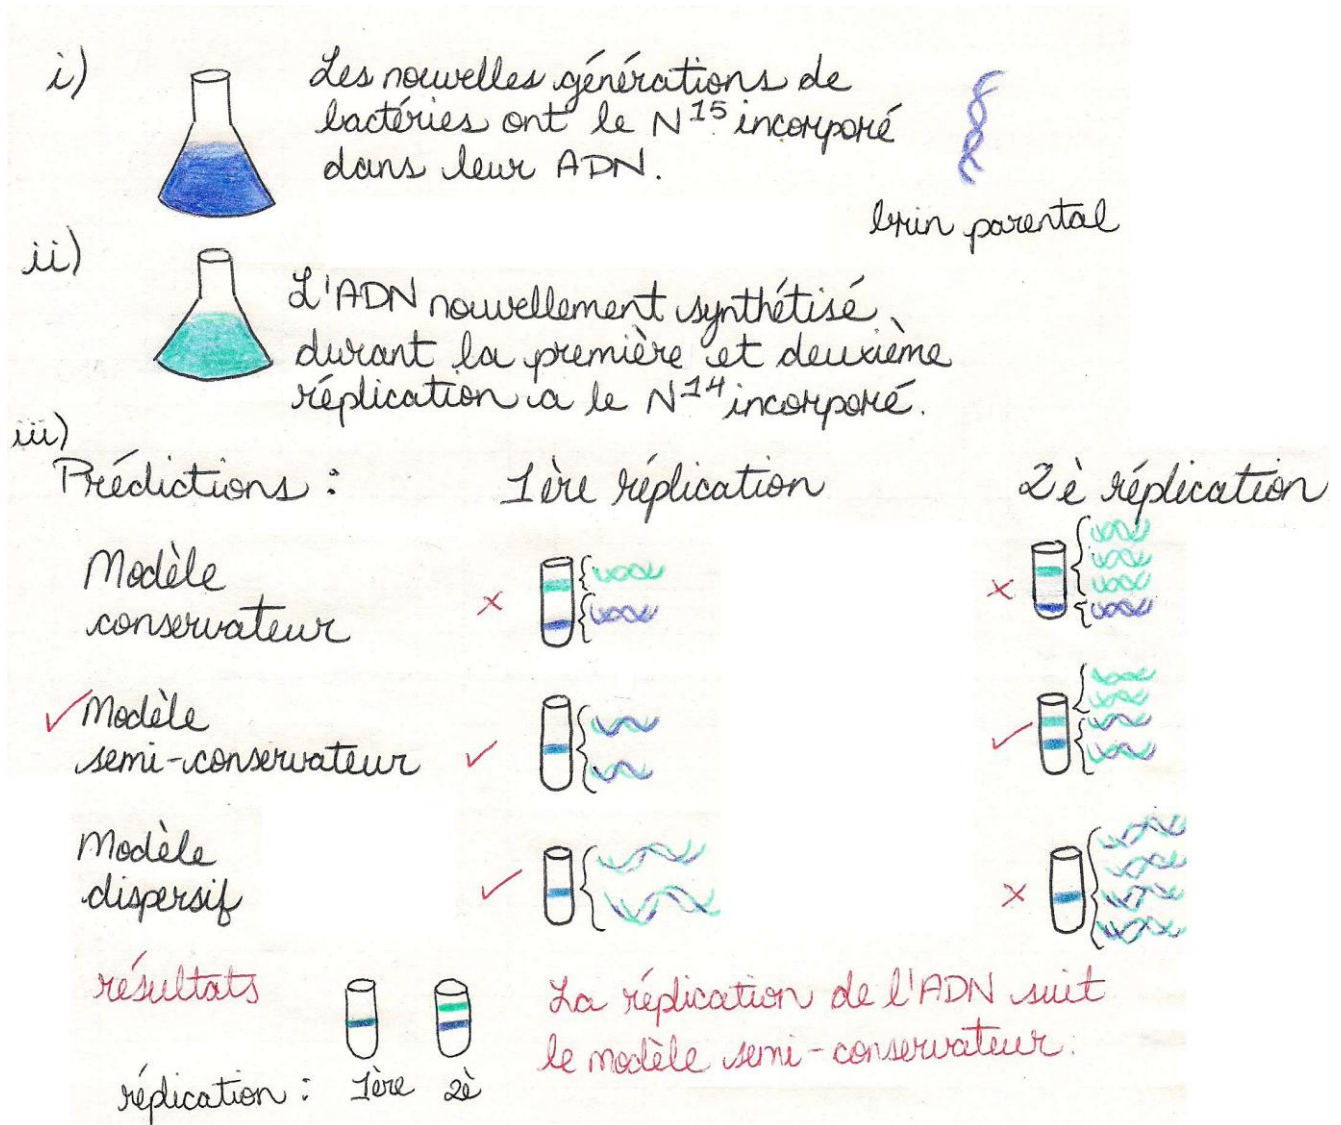 i)
Les nouvelles générations de
bactéries ont le N¹⁵ incorporé
dans leur ADN.
brin parental
ii)
L'ADN nouvellement synthétisé
durant la première et deuxième
réplication a le N¹⁴ incorporé.
iii)
Prédictions : 1ère réplication 2è réplication
Modèle
conservateur
Modèle
semi-conservateur
Modèle
dispersif
résultats
La réplication de l'ADN suit
le modèle semi-conservateur.
réplication : 1ère 2è